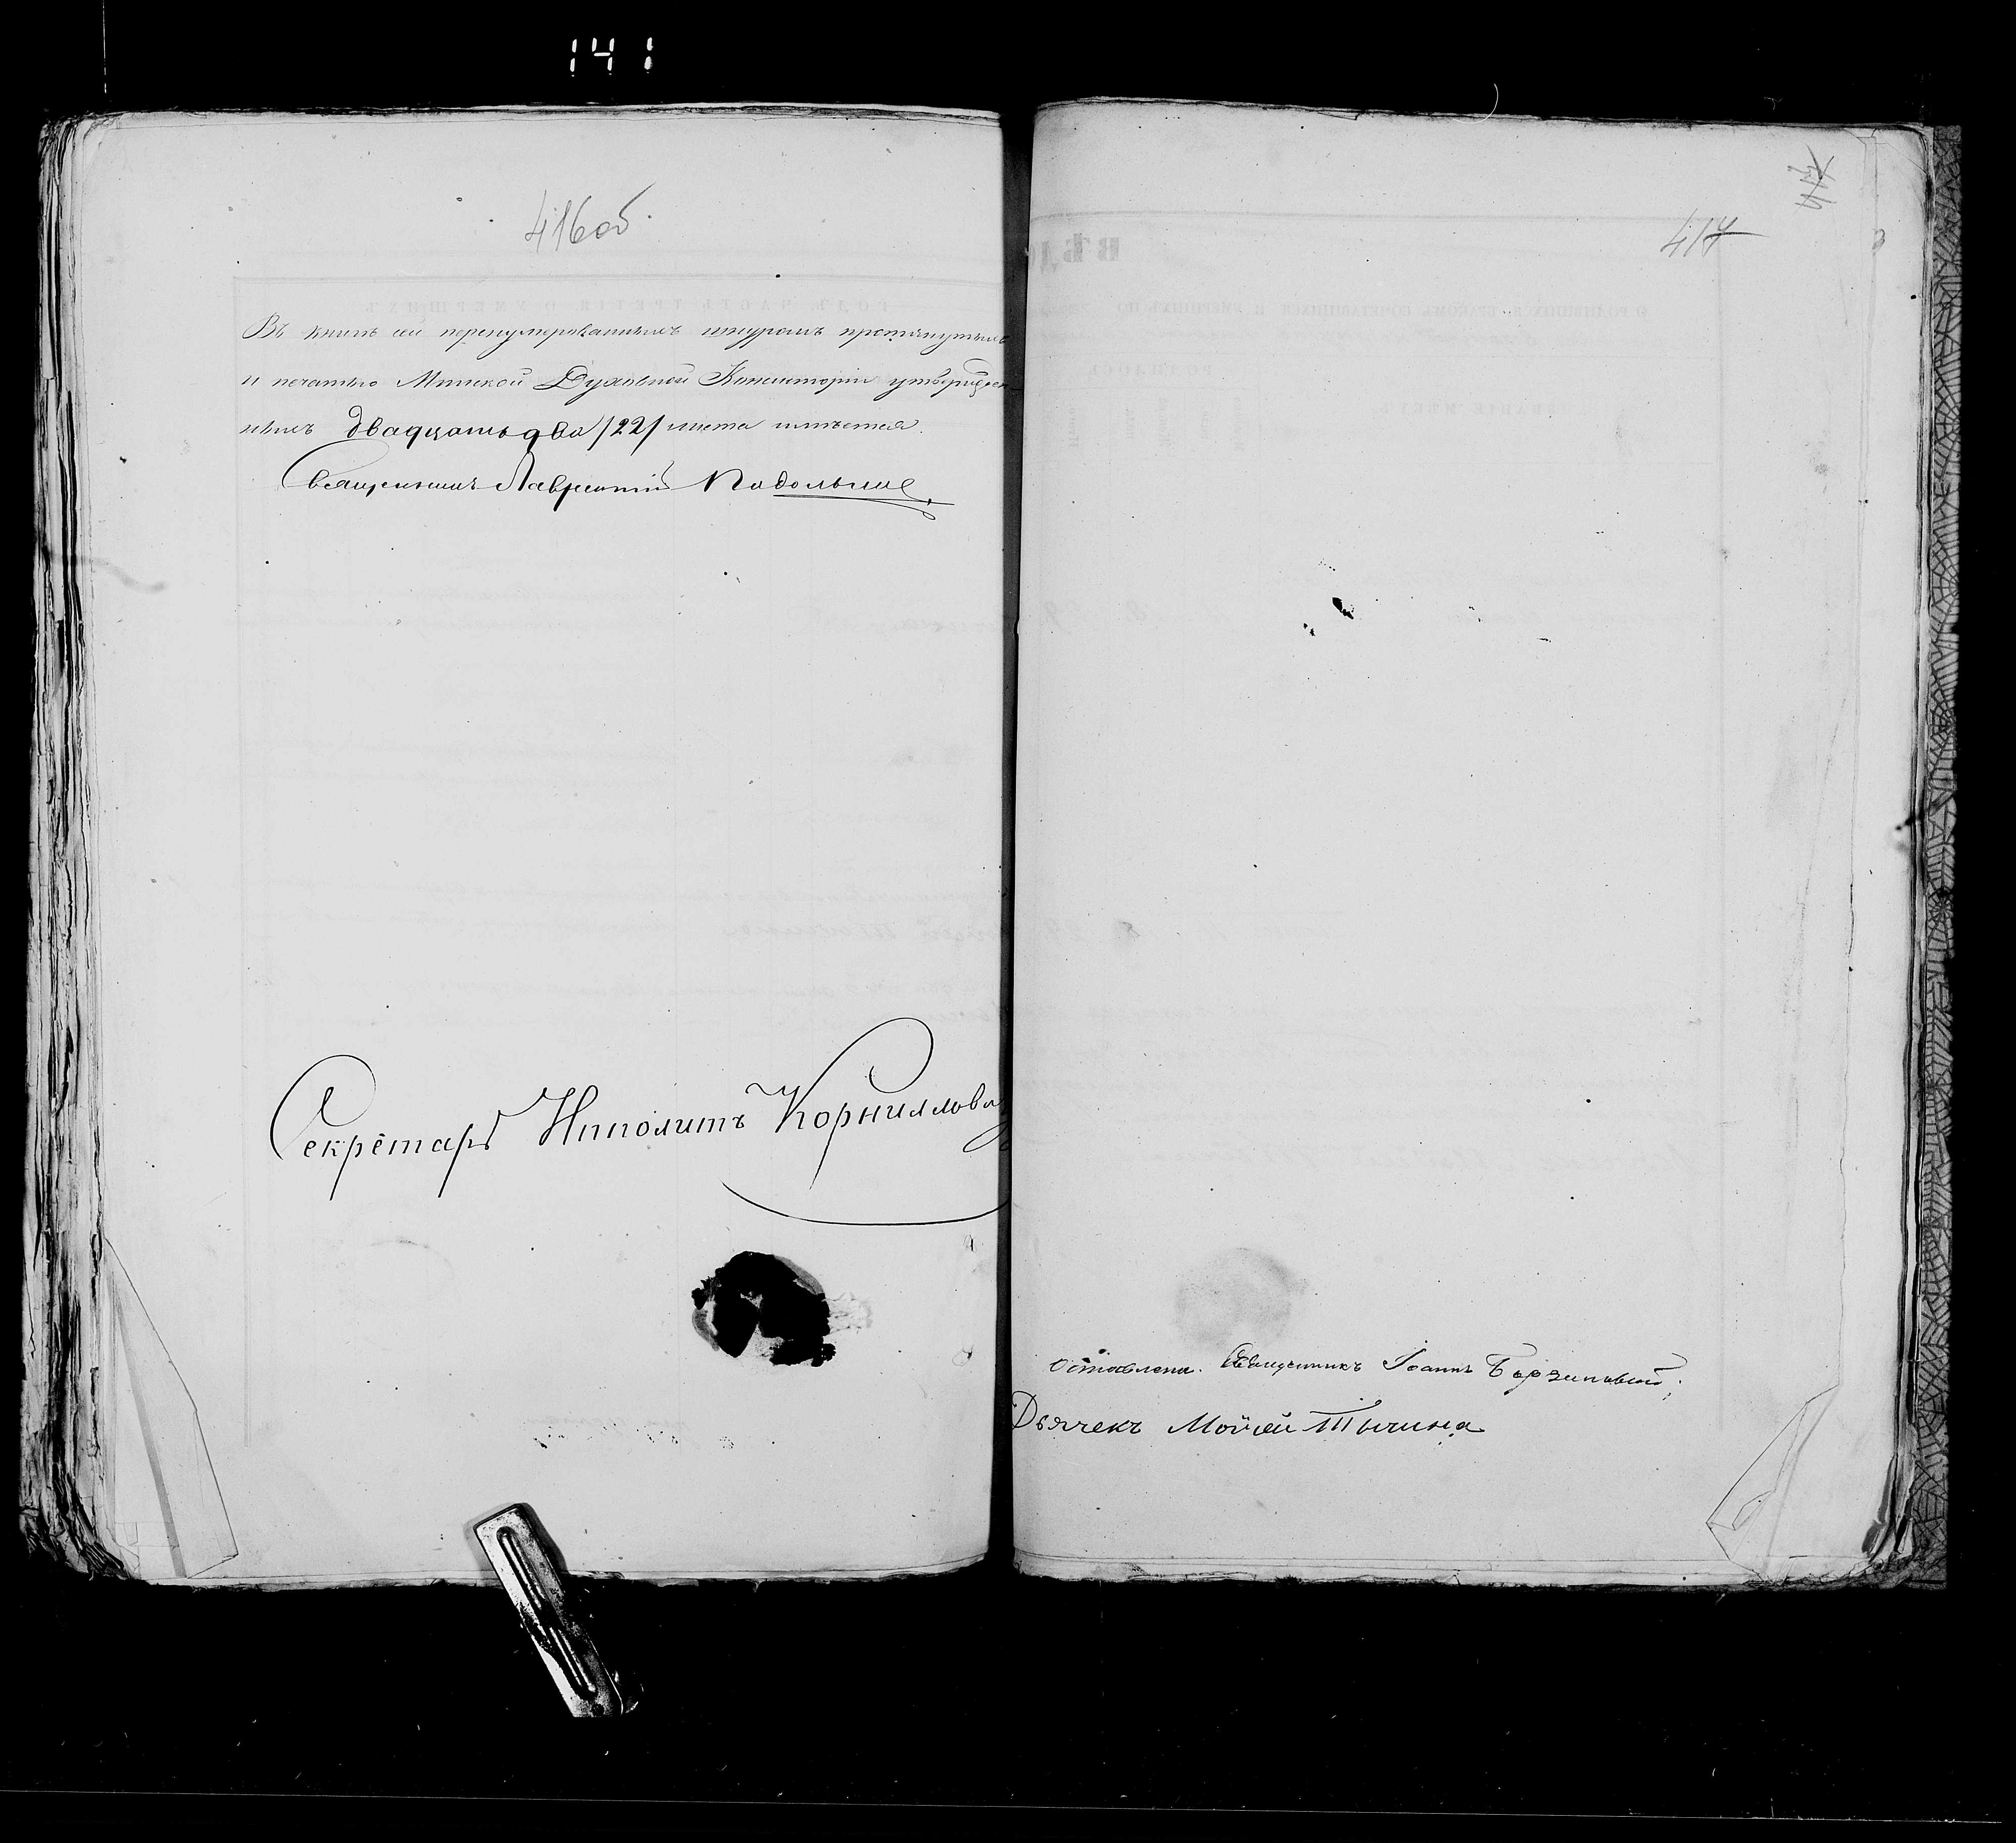 141
416об
Въ книгѣ сей перенумерованныхъ шнуромъ протянутыхъ
и печатью Минской Духовной Консисторіи утвержден-
ныхъ двадцать два /22/ листа имѣется.
Священникъ Лаврентій
Секретарь Ипполитъ
417
417
Священникъ Іоаннъ
Дьячекъ Мойсей Тычина